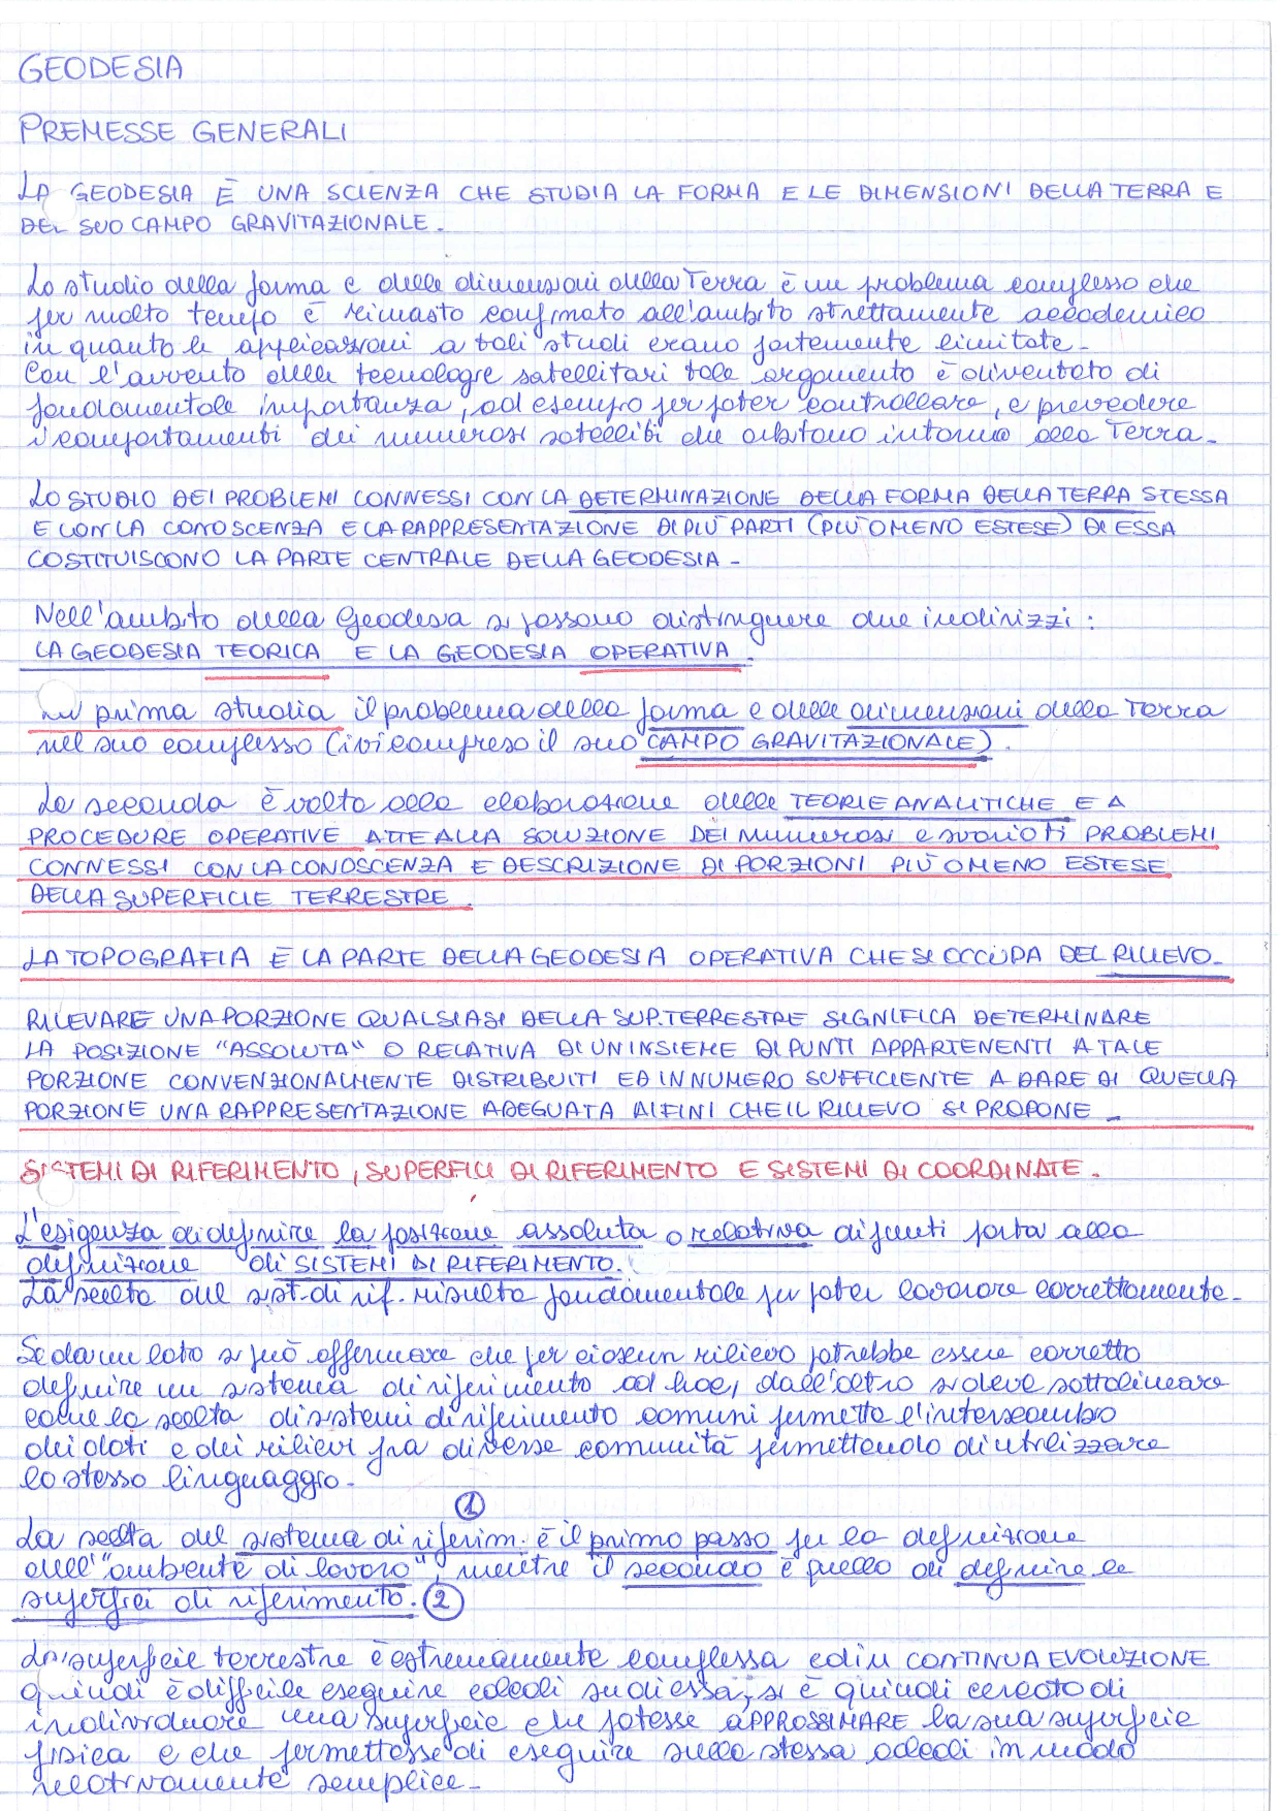 GEODESIA
PREMESSE GENERALI
LA GEODESIA È UNA SCIENZA CHE STUDIA LA FORMA E LE DIMENSIONI DELLA TERRA E
DEL SUO CAMPO GRAVITAZIONALE.
Lo studio della forma e delle dimensioni della Terra è un problema complesso che
per molto tempo è rimasto confinato all'ambito strettamente accademico
in quanto le applicazioni a tali studi erano fortemente limitate.
Con l'avvento delle tecnologie satellitari tale argomento è diventato di
fondamentale importanza, ad esempio per poter controllare, e prevedere
i comportamenti dei numerosi satelliti che orbitano intorno alla Terra.
LO STUDIO DEI PROBLEMI CONNESSI CON LA DETERMINAZIONE DELLA FORMA DELLA TERRA STESSA
E CON LA CONOSCENZA E LA RAPPRESENTAZIONE DI PIÙ PARTI (PIÙ O MENO ESTESE) DI ESSA
COSTITUISCONO LA PARTE CENTRALE DELLA GEODESIA.
Nell'ambito della Geodesia si possono distinguere due indirizzi:
LA GEODESIA TEORICA E LA GEODESIA OPERATIVA.
prima studia il problema della forma e delle dimensioni della Terra
nel suo complesso (ivi compreso il suo CAMPO GRAVITAZIONALE).
La seconda è volta alla elaborazione delle TEORIE ANALITICHE E A
PROCEDURE OPERATIVE ATTE ALLA SOLUZIONE DEI numerosi e svariati PROBLEMI
CONNESSI CON LA CONOSCENZA E DESCRIZIONE DI PORZIONI PIÙ O MENO ESTESE
DELLA SUPERFICIE TERRESTRE.
LA TOPOGRAFIA È LA PARTE DELLA GEODESIA OPERATIVA CHE SI OCCUPA DEL RILIEVO.
RILEVARE UNA PORZIONE QUALSIASI DELLA SUP. TERRESTRE SIGNIFICA DETERMINARE
LA POSIZIONE "ASSOLUTA" O RELATIVA DI UN INSIEME DI PUNTI APPARTENENTI A TALE
PORZIONE CONVENZIONALMENTE DISTRIBUITI ED IN NUMERO SUFFICIENTE A DARE DI QUELLA
PORZIONE UNA RAPPRESENTAZIONE ADEGUATA AI FINI CHE IL RILIEVO SI PROPONE.
SISTEMI DI RIFERIMENTO, SUPERFICI DI RIFERIMENTO E SISTEMI DI COORDINATE.
L'esigenza di definire la posizione assoluta o relativa di punti porta alla
definizione di SISTEMI DI RIFERIMENTO.
La scelta del sist. di rif. risulta fondamentale per poter lavorare correttamente.
Se da un lato si può affermare che per ciascun rilievo potrebbe essere corretto
definire un sistema di riferimento ad hoc, dall'altro si deve sottolineare
come la scelta di sistemi di riferimento comuni permetta l'interscambio
dei dati e dei rilievi fra diverse comunità permettendo di utilizzare
lo stesso linguaggio.
1
La scelta del sistema di riferim. è il primo passo per la definizione
dell'"ambiente di lavoro", mentre il secondo è quello di definire le
superfici di riferimento. 2
La superficie terrestre è estremamente complessa ed in CONTINUA EVOLUZIONE
quindi è difficile eseguire calcoli su di essa, si è quindi cercato di
individuare una superficie che potesse APPROSSIMARE la sua superficie
fisica e che permettesse di eseguire sulla stessa calcoli in modo
relativamente semplice.